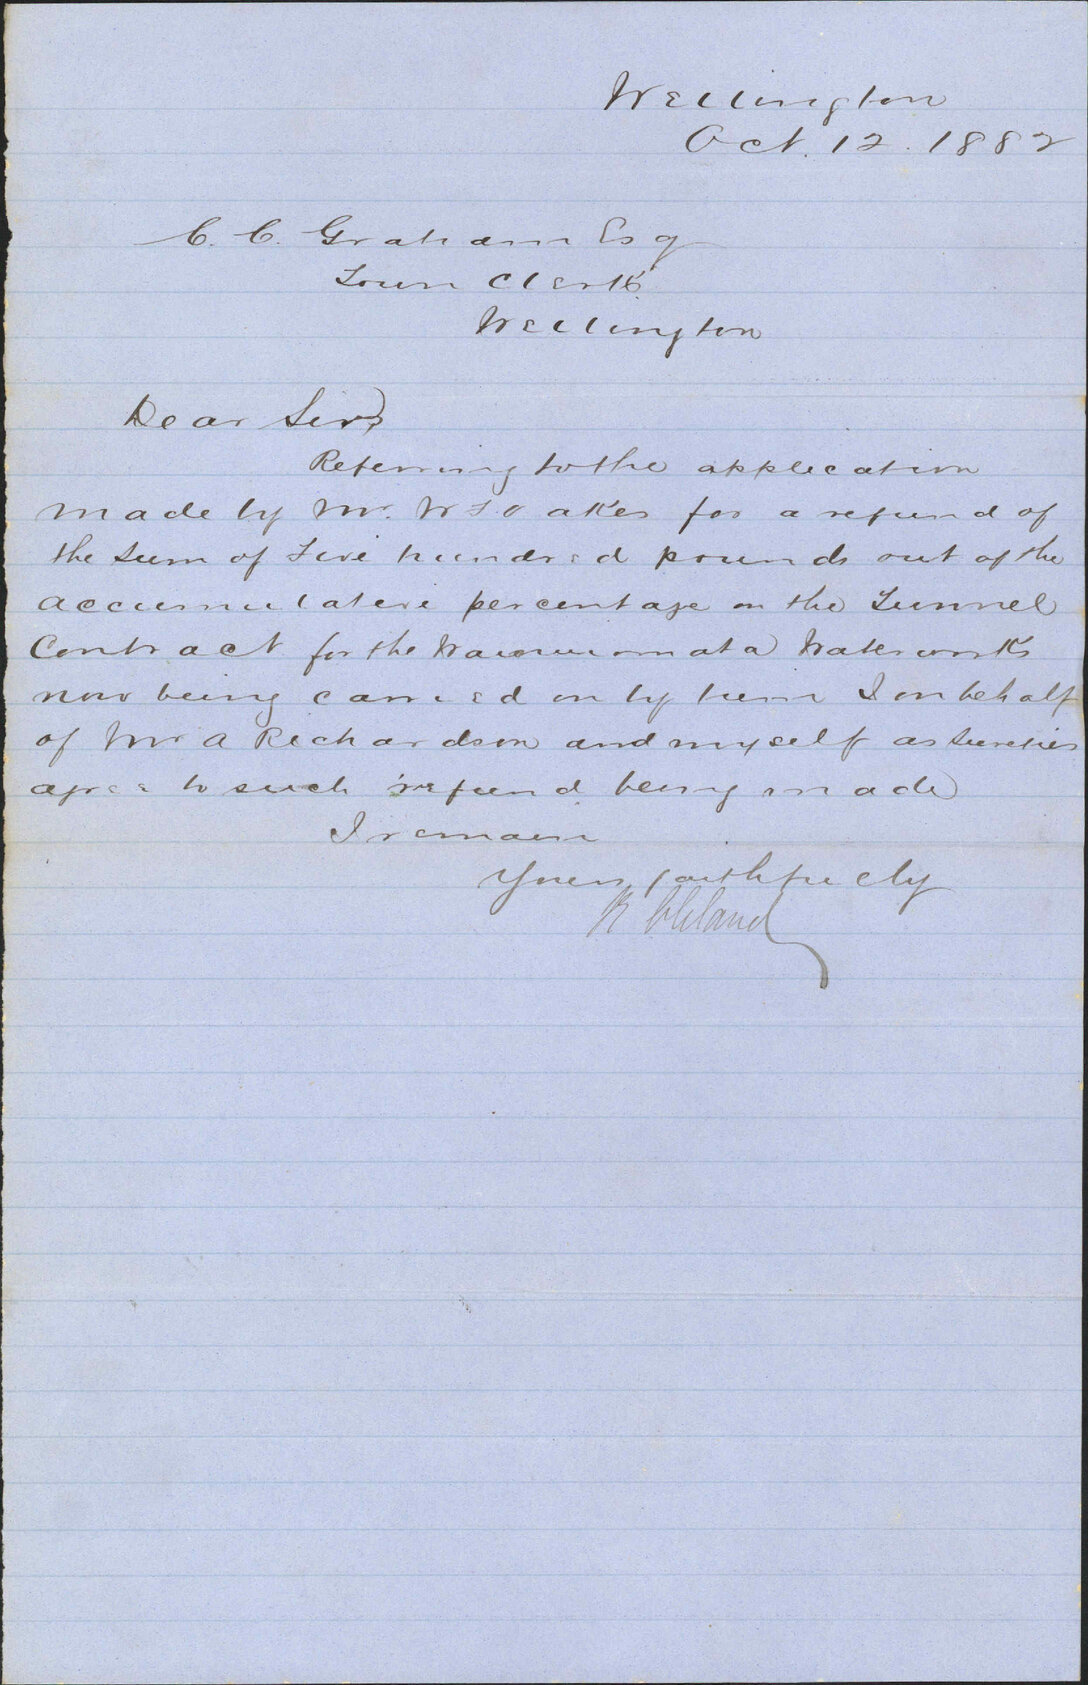 Wellington
Oct. 12. 1882
C. C. Graham Esq
Town Clerk
Wellington
Dear Sir,
Referring to the application
made by Mr. W F Oakes for a refund of
the sum of Five hundred pounds out of the
accumulative percentage on the Tunnel
Contract for the Wainuiomata Waterworks
now being carried on by him I on behalf
of Mr A Richardson and myself as Sureties
agree to such refund being made
I remain
Yours faithfully